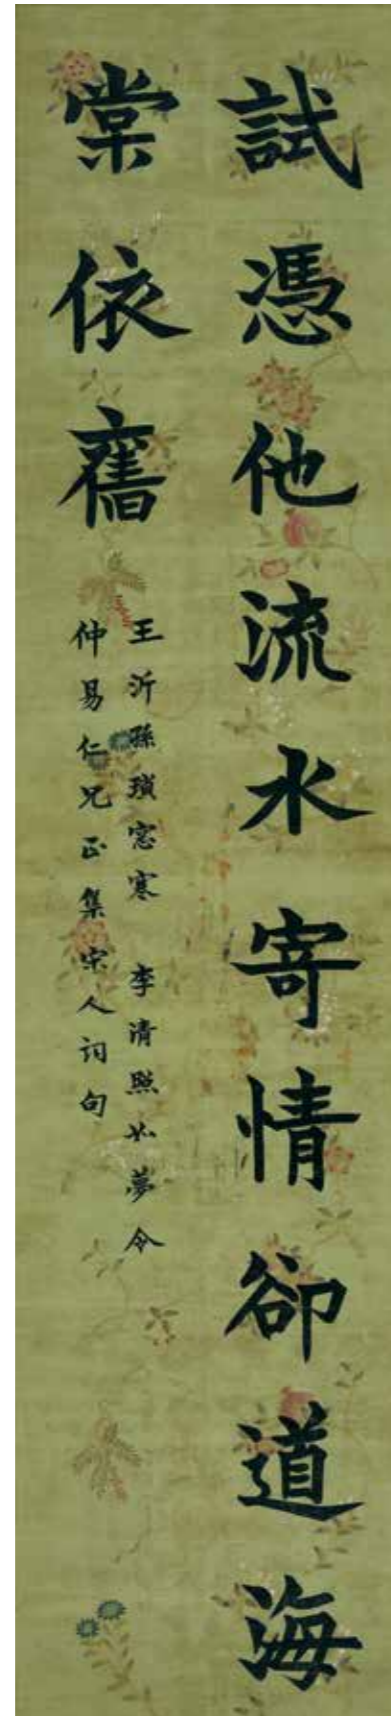 試憑他流水寄情卻道海
棠依舊
王沂孫瑣窓寒 李清照如夢令
仲易仁兄正集宋人詞句